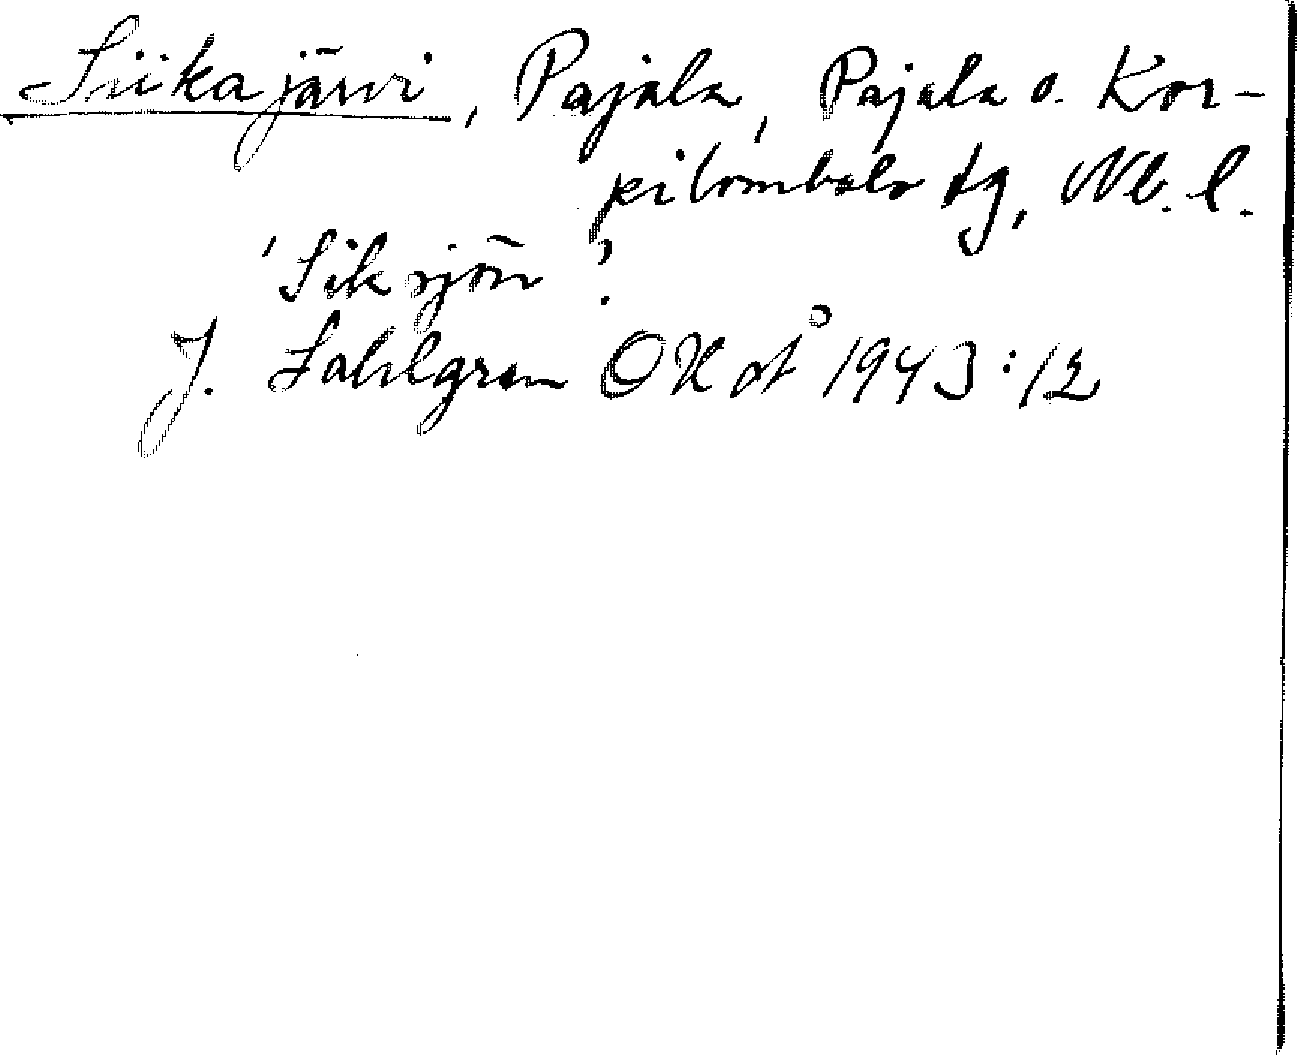 Siikajärvi, Pajala, Pajala o. Kor-
pilombolo tg, Nb. l.
'Siksjön'.
J. Sahlgren OUÅ 1943:12